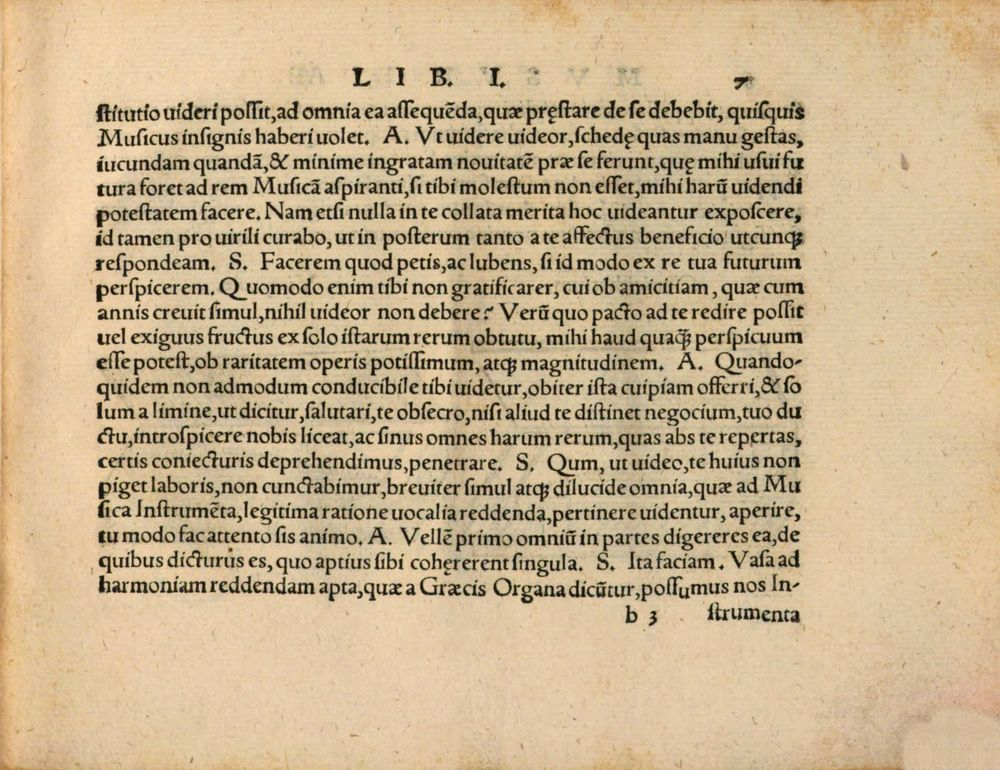 LIB. I. 7
stitutio uideri possit, ad omnia ea assequēda, quæ pręstare de se debebit, quisquis
Musicus insignis haberi uolet. A. Vt uidere uideor, schedę quas manu gestas,
iucundam quandā, & minime ingratam nouitatē præ se ferunt, quę mihi usui fu
tura foret ad rem Musicā aspiranti, si tibi molestum non esset, mihi harū uidendi
potestatem facere. Nam etsi nulla in te collata merita hoc uideantur exposcere,
id tamen pro uirili curabo, ut in posterum tanto a te affectus beneficio utcunqꝫ
respondeam. S. Facerem quod petis, ac lubens, si id modo ex re tua futurum
perspicerem. Quomodo enim tibi non gratificarer, cui ob amicitiam, quæ cum
annis creuit simul, nihil uideor non debere? Verū quo pacto ad te redire possit
uel exiguus fructus ex solo istarum rerum obtutu, mihi haud quaqꝫ̄ perspicuum
esse potest, ob raritatem operis potissimum, atqꝫ magnitudinem. A. Quando-
quidem non admodum conducibile tibi uidetur, obiter ista cuipiam offerri, & so
lum a limine, ut dicitur, salutari, te obsecro, nisi aliud te distinet negocium, tuo du
ctu, introspicere nobis liceat, ac sinus omnes harum rerum, quas abs te repertas,
certis coniecturis deprehendimus, penetrare. S. Qum, ut uideo, te huius non
piget laboris, non cunctabimur, breuiter simul atqꝫ dilucide omnia, quæ ad Mu
sica Instrumēta, legitima ratione uocalia reddenda, pertinere uidentur, aperire,
tu modo fac attento sis animo. A. Vellē primo omniū in partes digereres ea, de
quibus dicturus es, quo aptius sibi cohęrerent singula. S. Ita faciam. Vasa ad
harmoniam reddendam apta, quæ a Græcis Organa dicūtur, possumus nos In-
b 3 strumenta